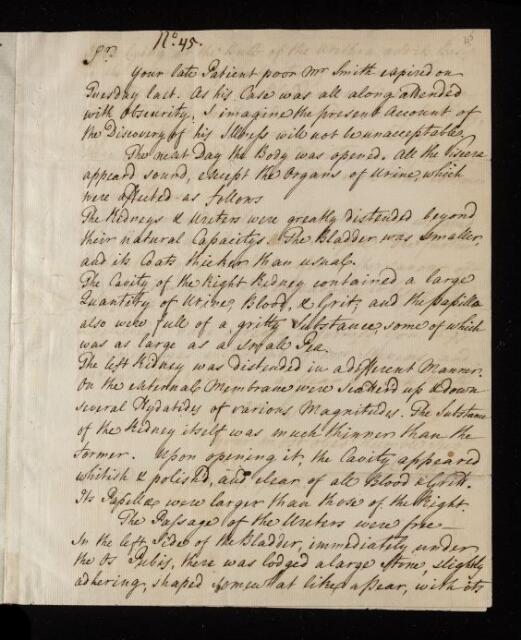 No. 45.
Sr.
Your late Patient poor Mr Smith expired on
Tuesday last. As his Case was all along attended
with Obscurity, I imagine the present Account of
the Discovery of his Illness will not be unacceptable.
The next Day the Body was opened. All the Viscera
appeard sound, except the Organs of Urine, which
were affected as follows
The Kidneys & Ureters were greatly distended beyond
their natural Capacitys. The Bladder was smaller,
and its Coats thicker than usual.
The Cavity of the Right Kidney contained a large
Quantity of Urine, Blood, & Grit, and the papillæ
also were full of a gritty Substance, some of which
was as large as a small Pea.
The left Kidney was distended in a different Manner.
On the external Membrane were scatterd up & down
several Hydatides of various Magnitudes. The Substance
of the Kidney itself was much thinner than the
former. Upon opening it, the Cavity appeared
whitish & polished, and clear of all Blood & Grit.
Its Papillæ were larger than those of the Right.
The Passage of the Ureters were free
In the left Side of the Bladder, immediately under
the Os Pubis, there was lodged a large Stone, slightly
adhering, shaped somewhat like a Pear, with its